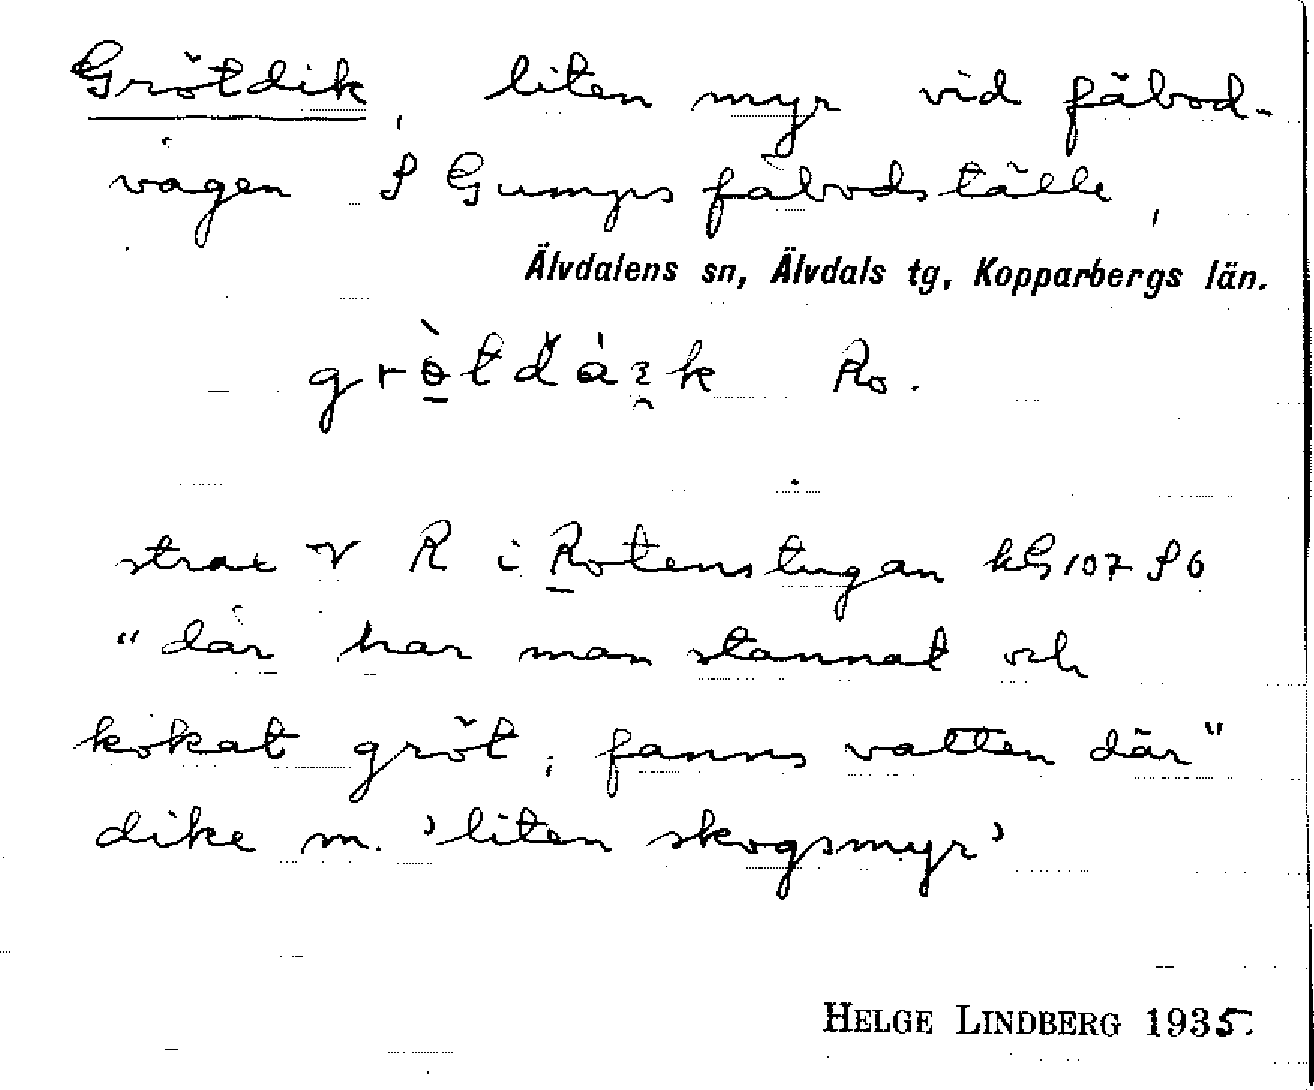 Grötdik, liten myr vid fäbod-
vägen S Gumps fäbodställe,
Älvdalens sn, Älvdals tg, Kopparbergs län.
Ro.
strax V R i Rotenstugan kG 107 S 6
"där har man stannat och
kokat gröt, fanns vatten där"
dike m. 'liten skogsmyr'
HELGE LINDBERG 1935.